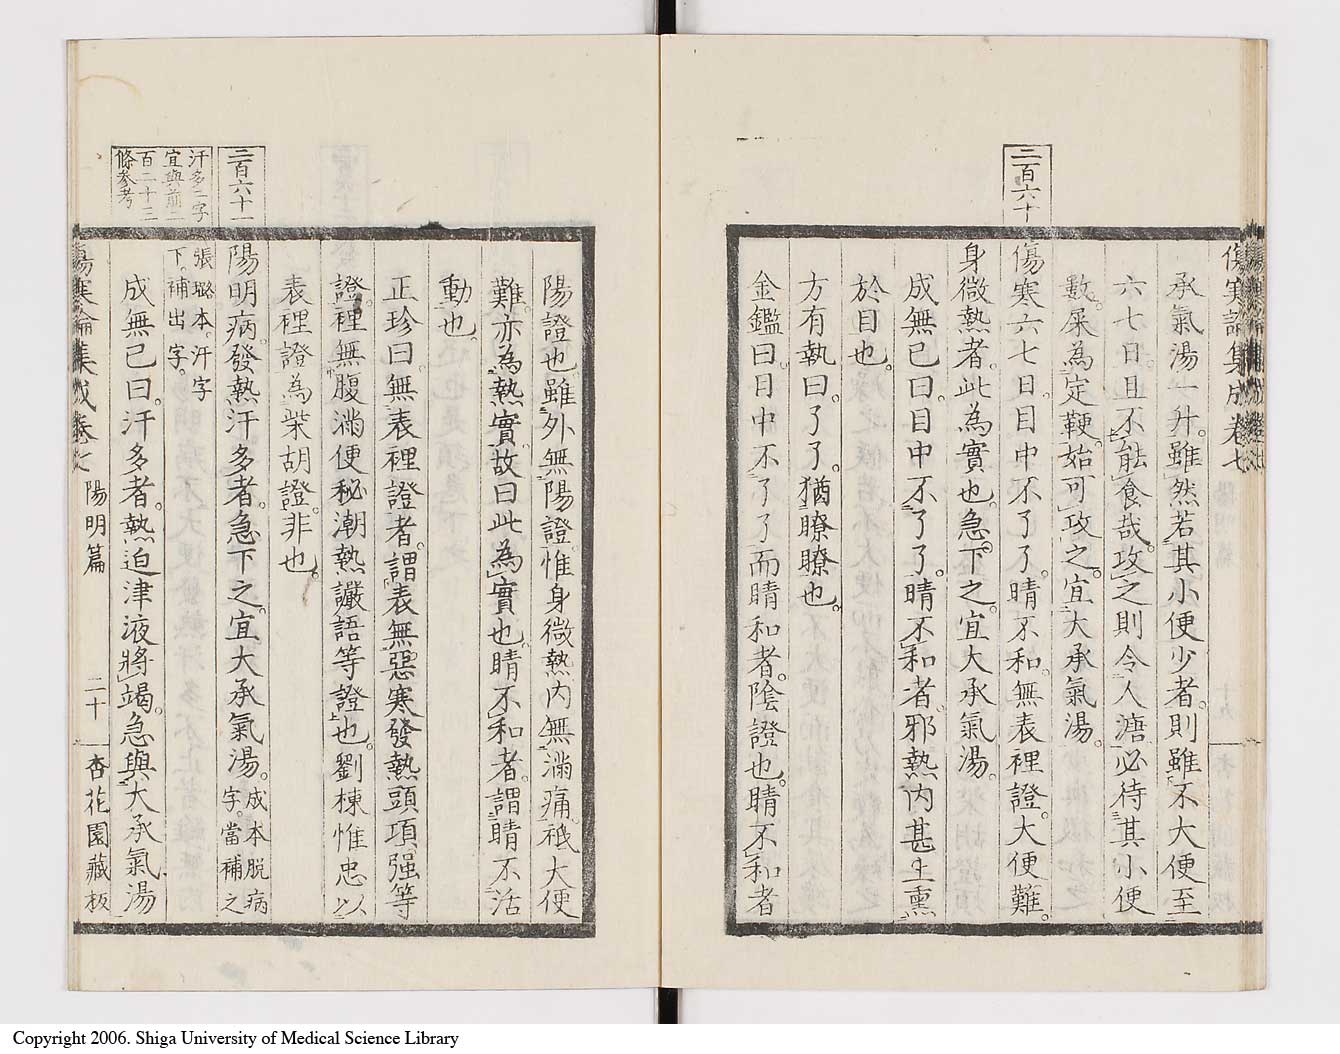 承氣湯一升。雖然若其小便少者。則雖不大便至
六七日。且不能食哉。攻之則令人溏。必待其小便
數。屎為定鞕。始可攻之。宜大承氣湯。
二百六十
傷寒六七日。目中不了了。睛不和。無表裡證。大便難。
身微熱者。此為實也。急下之。宜大承氣湯。
成無已曰。目中不了了。睛不和者。邪熱內甚上熏
於目也。
方有執曰。了了。猶瞭瞭也。
金鑑曰。目中不了了而睛和者。陰證也。睛不和者
陽證也。雖外無陽證。惟身微熱。內無滿痛。祗大便
難。亦為熱實。故曰此為實也。睛不和者。謂睛不活
動也。
正珍曰。無表裡證者。謂表無惡寒發熱頭項强等
證。裡無腹滿便秘潮熱讝語等證也。劉棟惟忠以
表裡證為柴胡證。非也。
二百六十一
陽明病。發熱汗多者。急下之。宜大承氣湯。成本脱病
字。當補之
汗多二字
宜與前二
百二十三
條參考
張璐本。汗字
下。補出字。
成無已曰。汗多者。熱迫津液將竭。急與大承氣湯
傷寒論集成卷七 陽明篇 二十 杏花園藏板
Copyright 2006. Shiga University of Medical Science Library